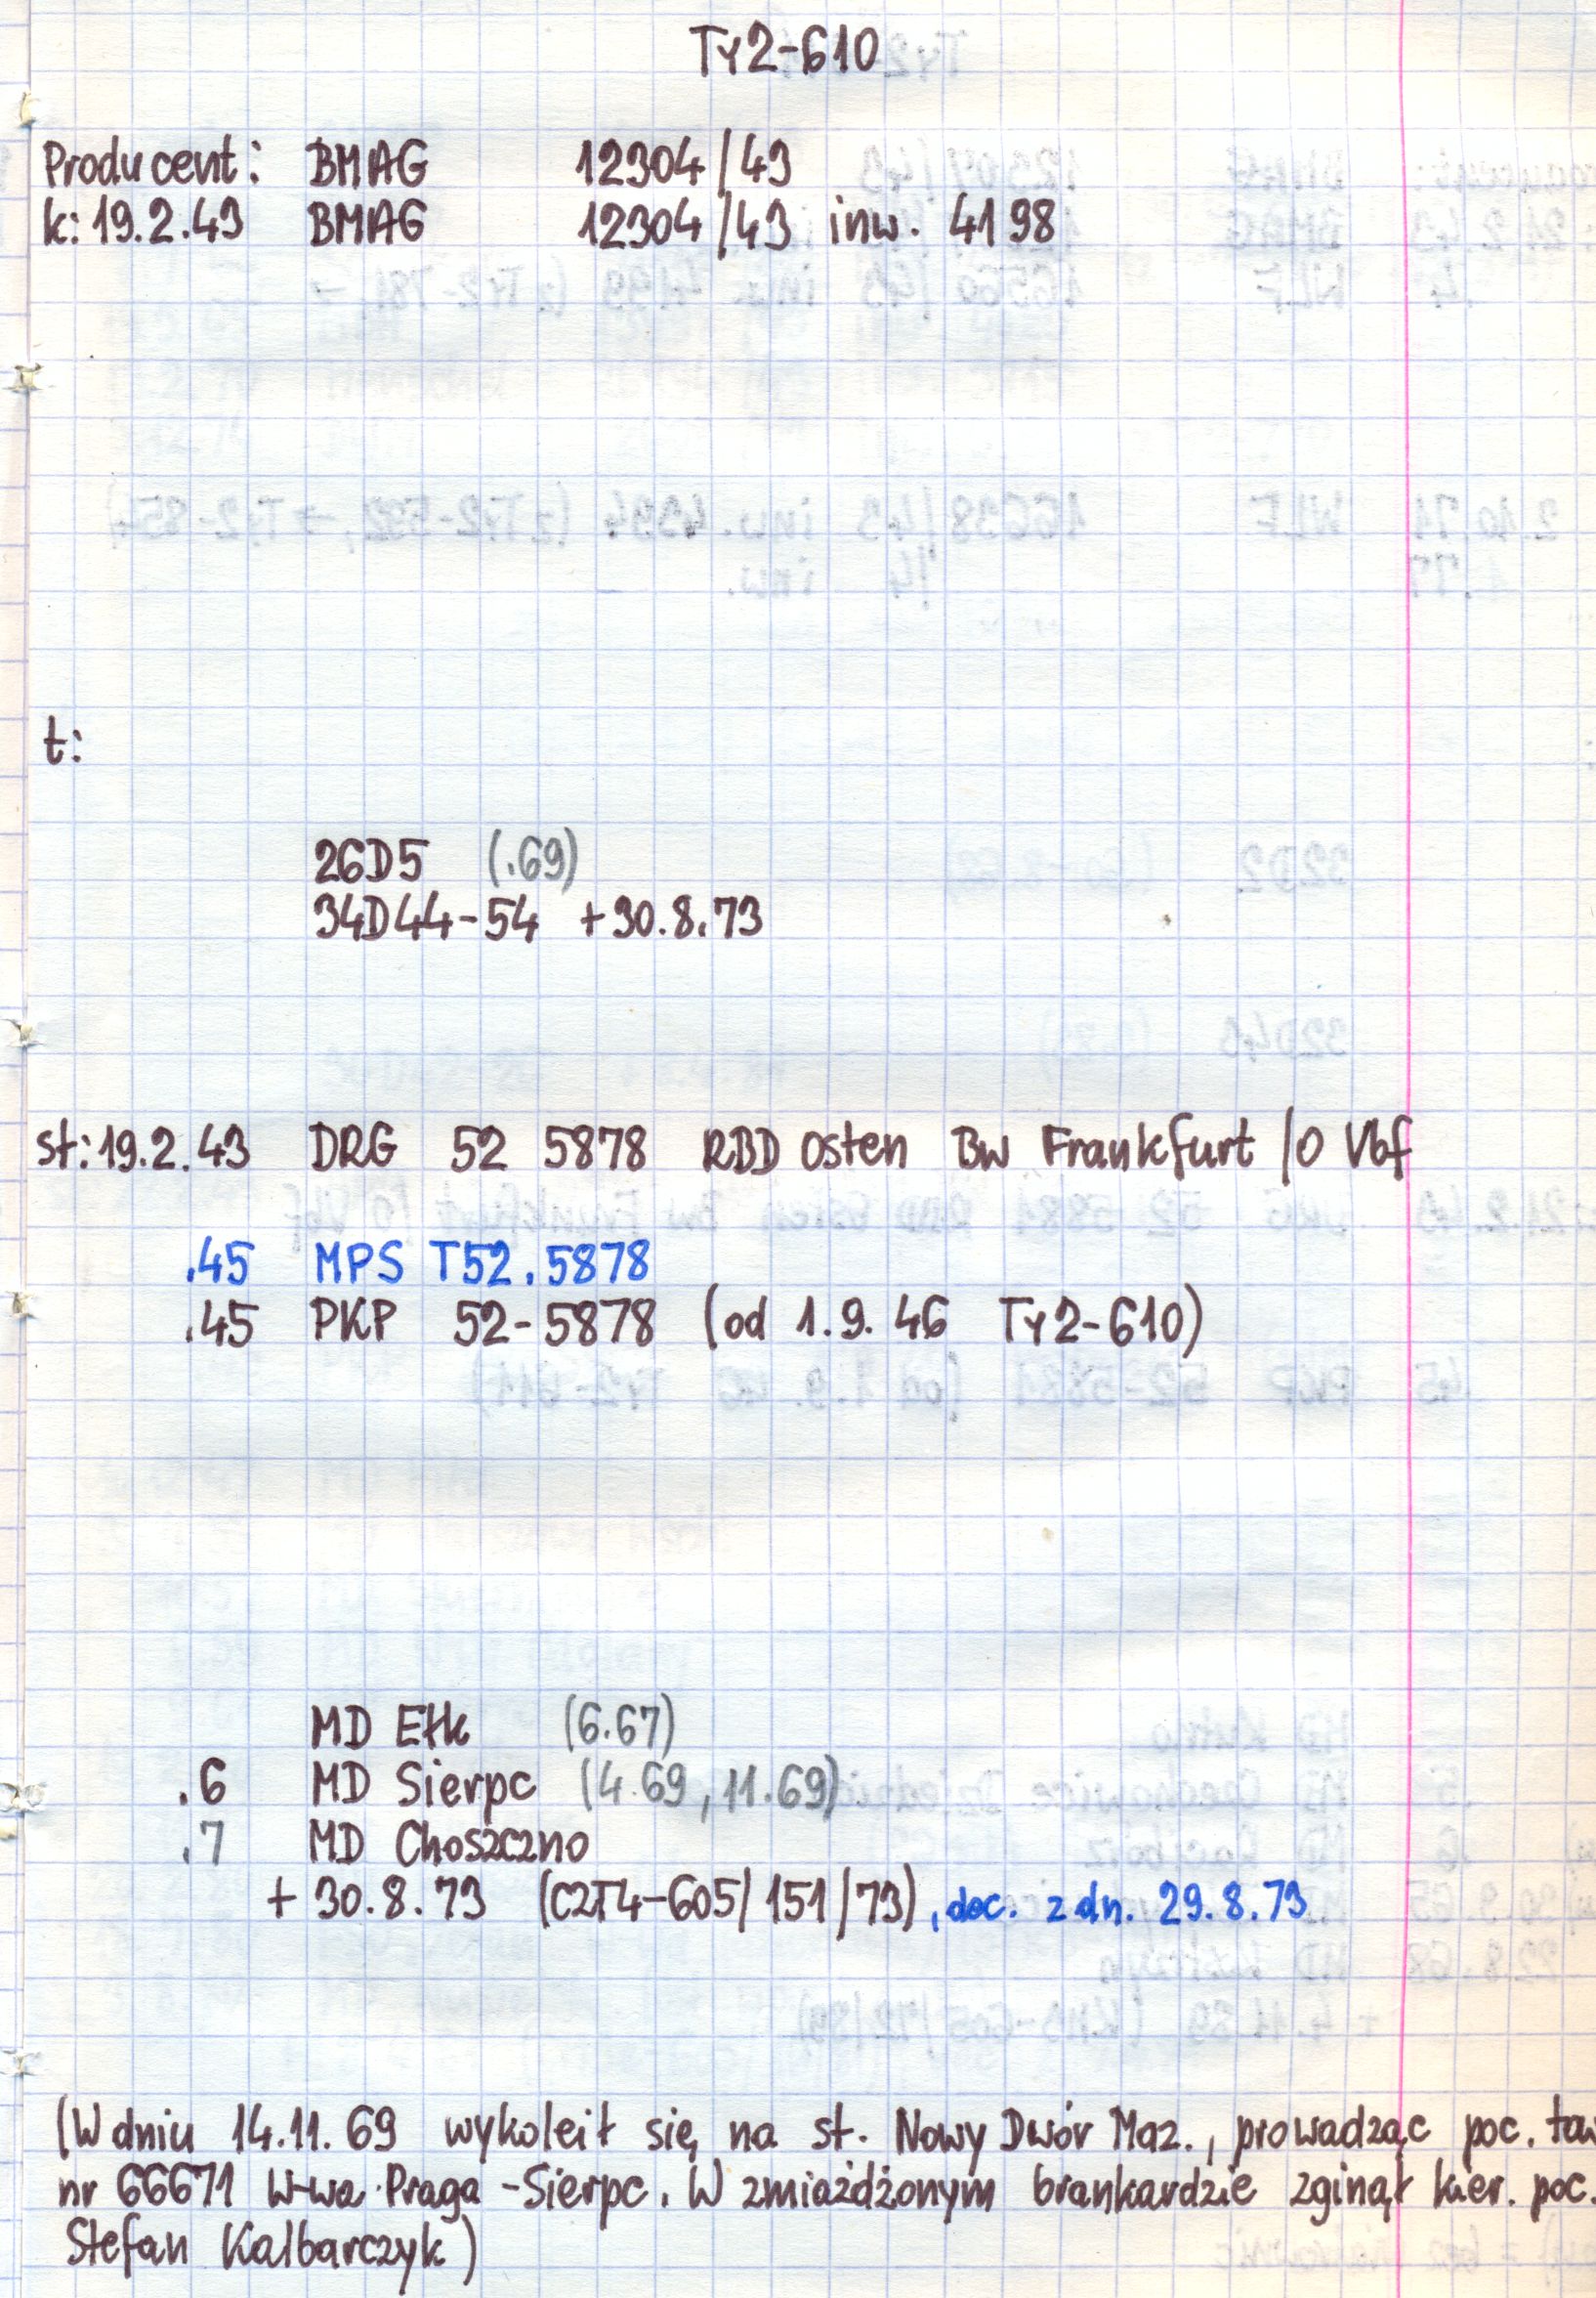 Ty2-610
Producent: BMAG 12304/43
k: 19.2.43 BMAG 12304/43 inw. 4198
t:
26D5 (.69)
34D44-54 +30.8.73
st: 19.2.43 DRG 52 5878 RBD Osten Bw Frankfurt /O Vbf
.45 MPS T52.5878
.45 PKP 52-5878 (od 1.9.46 Ty2-610)
MD Ełk (6.67)
.6 MD Sierpc (4.69, 11.69)
.7 MD Choszczno
+ 30.8.73 (C2T4-605/151/73), doc. z dn. 29.8.73
(W dniu 14.11.69 wykoleił się na st. Nowy Dwór Maz., prowadząc poc. tow
nr 66671 W-wa Praga - Sierpc. W zmiażdżonym brankardzie zginął kier. poc.
Stefan Kalbarczyk)